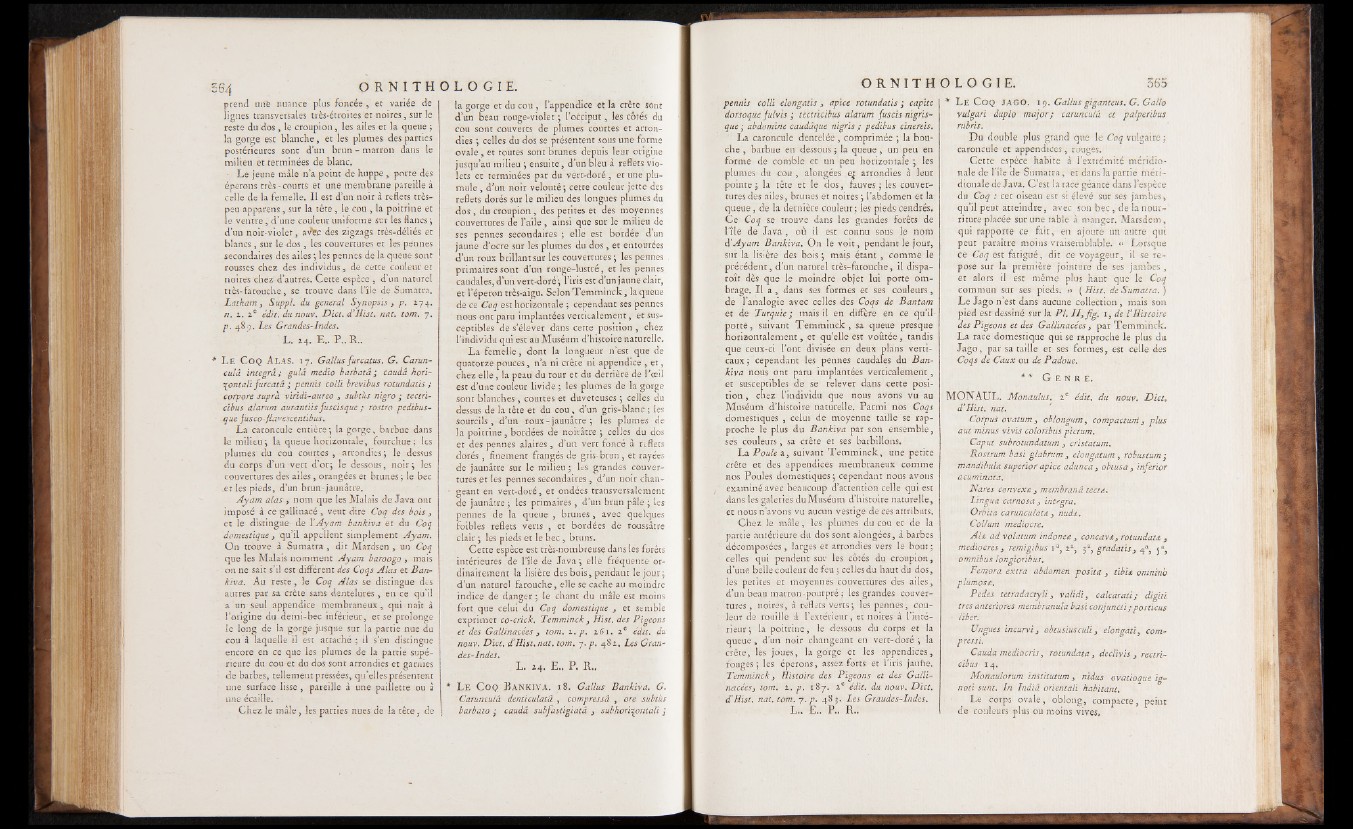 364
ORNITHOLOGIE.
prend une nuance plus foncée, et variée de
lignes transversales très-étroites et noires, sur le
reste du dos, le croupion, les ailes et la queue ;
la gorge est blanche, et les plumes des parties
postérieures sont d'un brun - marron dans le
milieu et terminées de blanc.
Le jeune mâle n'a point de huppe, porte des
éperons très-courts et une membrane pareille à
celle de la femelle. Il est d'un noir à reflets très-
peu apparens, sur la tête, le cou, la poitrine et
le ventre, d'une couleur uniforme sur les flancs,
d'un noir-violet, avec des zigzags très-déliés et
blancs, sur le dos, les couvertures et les pennes
secondaires des ailes ; les pennes de la queue sont
rousses chez des individus, de cette couleur et
noires chez d'autres. Cette espèce, d'un naturel
très-farouche, se trouve dans l'île de Sumatra.
Latham, Suppl. du general Synopsis, p. 274.
n. 2. 2e édit. du nouv. Dict. d'Hist. nat. tom. 7.
p. 489. Les Grandes-Indes.
L. 24. E.. P.. R..
* LE COQ ALAS. 17. Gallus furcatus. G. Carun-
culâ integrâ ; gulâ medio barbatâ ; caudâ hori-
zontali furcatâ ; pennis colli brevibus rotundatis ;
corpore suprà viridi-aureo, subtùs nigro ; tectri-
cibus alarum aurantiis fuscisque ; rostro pedibus-
que fusco-flavescentibus.
La caroncule entière ; la gorge, barbue dans
le milieu ; la queue horizontale, fourchue ; les
plumes du cou courtes, arrondies ; le dessus
du corps d'un vert d'or ; le dessous, noir ; les
couvertures des ailes, orangées et brunes ; le bec
et les pieds, d'un brun-jaunâtre.
Ayam alas, nom que les Malais de Java ont
imposé à ce gallinacé, veut dire Coq des bois,
et le distingue de l'Ayam bankiva et du Coq
domestique, qu'il appellent simplement Ayam.
On trouve à Sumatra, dit Mardsen, un Coq
que les Malais nomment Ayam barooga, mais
on ne sait s'il est différent des Coqs Alas et Ban-
kiva. Au reste, le Coq Alas se distingue des
autres par sa crête sans dentelures, en ce qu'il
a un seul appendice membraneux, qui naît à
l'origine du demi-bec inférieur, et se prolonge
le long de la gorge jusque sur la partie nue du
cou à laquelle il est attaché ; il s'en distingue
encore en ce que les plumes de la partie supé-
rieure du cou et du dos sont arrondies et garnies
de barbes, tellement pressées, qu'elles présentent
une surface lisse, pareille à une paillette ou à
une écaille.
Chez le mâle, les parties nues de la tête, de
la gorge et du cou, l'appendice et la crête sont
d'un beau rouge-violet ; l'occiput, les côtés du
cou sont couverts de plumes courtes et arron-
dies ; celles du dos se présentent sous une forme
ovale, et toutes sont brunes depuis leur origine
jusqu'au milieu ; ensuite, d'un bleu à reflets vio-
lets et terminées par du vert-doré, et une plu-
mule, d'un noir velouté ; cette couleur jette des
reflets dorés sur le milieu des longues plumes du
dos, du croupion, des petites et des moyennes
couvertures de l'aile, ainsi que sur le milieu de
ses pennes secondaires ; elle est bordée d'un
jaune d'ocre sur les plumes du dos, et entourées
d'un roux brillant sur les couvertures ; les pennes
primaires sont d'un rouge-lustré, et les pennes
caudales, d'un vert-doré ; l'iris est d'un jaune clair,
et l'éperon très-aigu. Selon Temminck, la queue
de ce Coq est horizontale ; cependant ses pennes
nous ont paru implantées verticalement, et sus-
ceptibles de s'élever dans cette position, chez
l'individu qui est au Muséum d'histoire naturelle.
La femelle, dont la longueur n'est que de
quatorze pouces, n'a ni crête ni appendice, et,
chez elle, la peau du tour et du derrière de l'œil
est d'une couleur livide ; les plumes de la gorge
sont blanches, courtes et duveteuses ; celles du
dessus de la tête et du cou, d'un gris-blanc ; les
sourcils, d'un roux-jaunâtre ; les plumes de
la poitrine, bordées de noirâtre ; celles du dos
et des pennes alaires, d'un vert foncé à reflets
dorés, finement frangés de gris-brun, et rayées
de jaunâtre sur le milieu ; les grandes couver-
tures et les pennes secondaires, d'un noir chan-
geant en vert-doré, et ondées transversalement
de jaunâtre ; les primaires, d'un brun pâle ; les
pennes de la queue, brunes, avec quelques
foibles reflets verts, et bordées de roussâtre
clair ; les pieds et le bec, bruns.
Cette espèce est très-nombreuse dans les forêts
intérieures de l'île de Java ; elle fréquente or-
dinairement la lisière des bois, pendant le jour ;
d'un naturel farouche, elle se cache au moindre
indice de danger ; le chant du mâle est moins
fort que celui du Coq domestique, et semble
exprimer co-crick. Temminck, Hist. des Pigeons
et des Gallinacées, tom. 2. p. 261. 2e édit. du
nouv. Dict. d'Hist. nat. tom. 7. p. 482. Les Gran-
des-Indes.
L. 24. E.. P. R..
* LE COQ BANKIVA. 18. Gallus Bankiva. G.
Carunculâ denticulatâ, compressâ, ore subtùs
barbato ; caudâ subfastigiatâ, subhorizontali ;
ORNITHOLOGIE.
365
pennis colli elongatis, apice rotundatis ; capite
dorsoque fulvis ; tectricibus alarum fuscis nigris-
que ; abdomine caudâque nigris ; pedibus cinereis.
La caroncule dentelée, comprimée ; la bou-
che, barbue en dessous ; la queue, un peu en
forme de comble et un peu horizontale ; les
plumes du cou, alongées et arrondies à leur
pointe ; la tête et le dos, fauves ; les couver-
tures des ailes, brunes et noires ; l'abdomen et la
queue, de la dernière couleur ; les pieds cendrés.
Ce Coq se trouve dans les grandes forêts de
l'île de Java, où il est connu sous le nom
d'Ayam Bankiva. On le voit, pendant le jour,
sur la lisière des bois ; mais étant, comme le
précédent, d'un naturel très-farouche, il dispa-
roît dès que le moindre objet lui porte om-
brage. Il a, dans ses formes et ses couleurs,
de l'analogie avec celles des Coqs de Bantam
et de Turquie ; mais il en diffère en ce qu'il
porte, suivant Temminck, sa queue presque
horizontalement, et qu'elle est voûtée, tandis
que ceux-ci l'ont divisée en deux plans verti-
caux ; cependant les pennes caudales du Ban-
kiva nous ont paru implantées verticalement,
et susceptibles de se relever dans cette posi-
tion, chez l'individu que nous avons vu au
Muséum d'histoire naturelle. Parmi nos Coqs
domestiques, celui de moyenne taille se rap-
proche le plus du Bankiva par son ensemble,
ses couleurs, sa crête et ses barbillons.
La Poule a, suivant Temminck, une petite
crête et des appendices membraneux comme
nos Poules domestiques ; cependant nous avons
examiné avec beaucoup d'attention celle qui est
dans les galeries du Muséum d'histoire naturelle,
et nous n'avons vu aucun vestige de ces attributs.
Chez le mâle, les plumes du cou et de la
partie antérieure du dos sont alongées, à barbes
décomposées, larges et arrondies vers le bout ;
celles qui pendent sur les côtés du croupion,
d'une belle couleur de feu ; celles du haut du dos,
les petites et moyennes couvertures des ailes,
d'un beau marron-pourpré ; les grandes couver-
tures, noires, à reflets verts ; les pennes, cou-
leur de rouille à l'extérieur, et noires à l'inté-
rieur ; la poitrine, le dessous du corps et la
queue, d'un noir changeant en vert-doré ; la
crête, les joues, la gorge et les appendices,
rouges ; les éperons, assez forts et l'iris jaune.
Temminck, Histoire des Pigeons et des Galli-
nacées, tom. 2. p. 187. 2e édit. du nouv. Dict.
d'Hist. nat. tom. 7. p. 483. Les Grandes-Indes.
L.. E.. P.. R..
* LE COQ JAGO. 19. Gallus giganteus. G. Gallo
vulgari duplo major ; carunculâ et palperibus
rubris.
Du double plus grand que le Coq vulgaire ;
caroncule et appendices, rouges.
Cette espèce habite à l'extrémité méridio-
nale de l'île de Sumatra, et dans la partie méri-
dionale de Java. C'est la race géante dans l'espèce
du Coq : cet oiseau est si élevé sur ses jambes,
qu'il peut atteindre, avec son bec, de la nour-
riture placée sur une table à manger. Marsdem,
qui rapporte ce fait, en ajoute un autre qui
peut paraître moins vraisemblable. « Lorsque
ce Coq est fatigué, dit ce voyageur, il se re-
pose sur la première jointure de ses jambes,
et alors il est même plus haut que le Coq
commun sur ses pieds. » ( Hist. de Sumatra. )
Le Jago n'est dans aucune collection, mais son
pied est dessiné sur la Pl. II, fig. 1, de l'Histoire
des Pigeons et des Gallinacées, par Temminck.
La race domestique qui se rapproche le plus du
Jago, par sa taille et ses formes, est celle des
Coqs de Caux ou de Padoue.
* * GENRE.
MONAUL. Monaulus. 2e édit. du nouv. Dict.
d'Hist. nat.
Corpus ovatum, oblongum, compactum, plus
aut minus vivis coloribus pictum.
Caput subrotundatum, cristatum.
Rostrum basi glabrum, elongatum, robustum ;
mandibula superior apice adunca, obtusa, inferior
acuminata.
Nares convexæ, membranâ tectæ.
Lingua carnosa, integra.
Orbita carunculata, nuda.
Collum mediocre.
Alæ ad volatum indoneæ, concavæ, rotundatæ,
mediocres, remigibus 1ª, 2ª, 3ª, gradatis, 4ª, 5ª,
omnibus longioribus.
Femora extra abdomen posita, tibiæ omninò
plumosæ.
Pedes tetradactyli, validi, calcarati ; digiti
tres anteriores membranula basi conjuncti ; posticus
liber.
Ungues incurvi, obtusiusculi, elongati, com-
pressi.
Cauda mediocris, rotundata, declivis, rectri-
cibus 14.
Monaulorum institutum, nidus ovatioque ig-
noti sunt. In Indiâ orientali habitant.
Le corps ovale, oblong, compacte, peint
de couleurs plus ou moins vives.